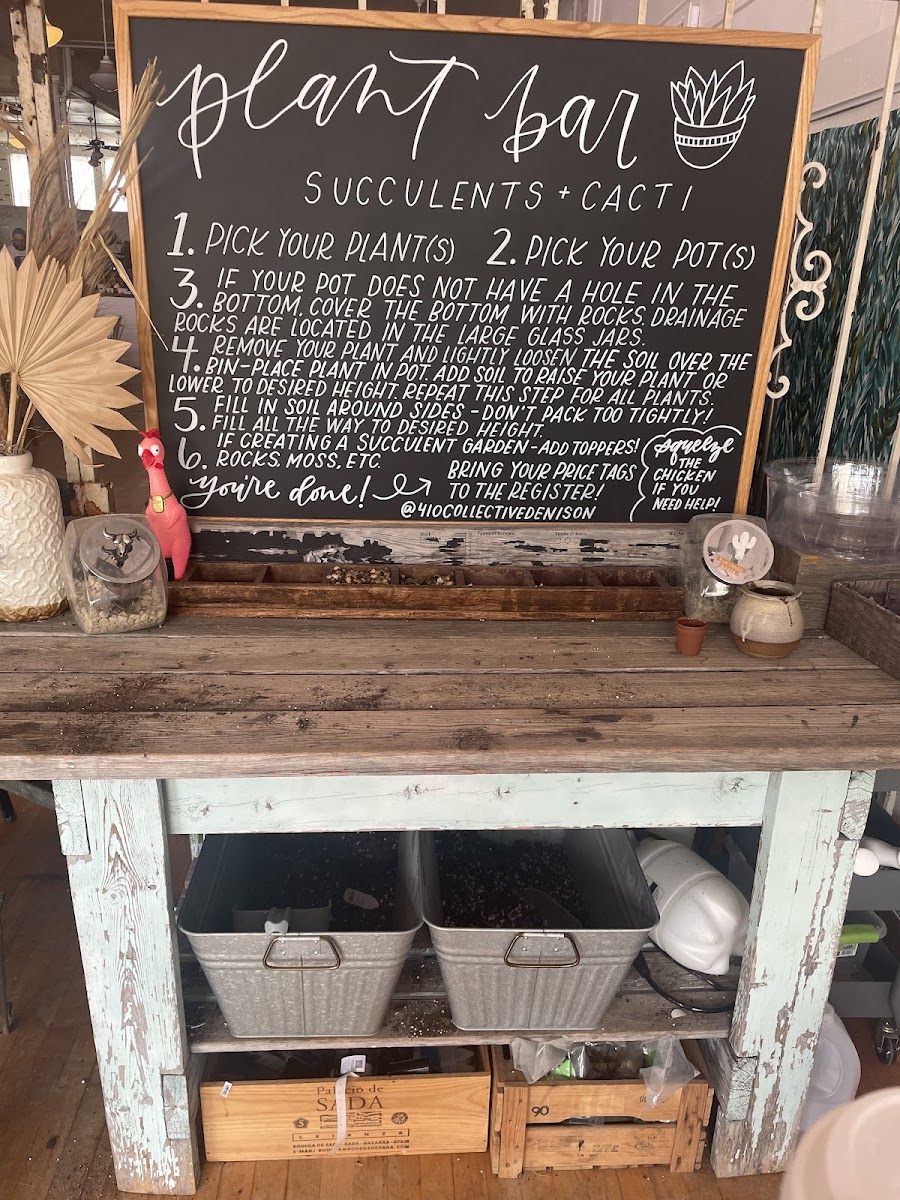 plant bar
SUCCULENTS + CACTI
1. PICK YOUR PLANT(S) 2. PICK YOUR POT(S)
3. IF YOUR POT DOES NOT HAVE A HOLE IN THE
BOTTOM, COVER THE BOTTOM WITH ROCKS. DRAINAGE
ROCKS ARE LOCATED IN THE LARGE GLASS JARS.
4. REMOVE YOUR PLANT AND LIGHTLY LOOSEN THE SOIL OVER THE
BIN-PLACE PLANT IN POT. ADD SOIL TO RAISE YOUR PLANT OR
LOWER TO DESIRED HEIGHT. REPEAT THIS STEP FOR ALL PLANTS.
5. FILL IN SOIL AROUND SIDES - DON'T PACK TOO TIGHTLY!
FILL ALL THE WAY TO DESIRED HEIGHT.
6. IF CREATING A SUCCULENT GARDEN - ADD TOPPERS!
ROCKS, MOSS, ETC.
you're done!
BRING YOUR PRICE TAGS
TO THE REGISTER!
@410COLLECTIVEDENISON
squeeze
THE
CHICKEN
IF YOU
NEED HELP!
Palacio de
SADA
CRIANZA
BODEGA DE SADA. SADA. NAVARRA. ESPAÑA
90